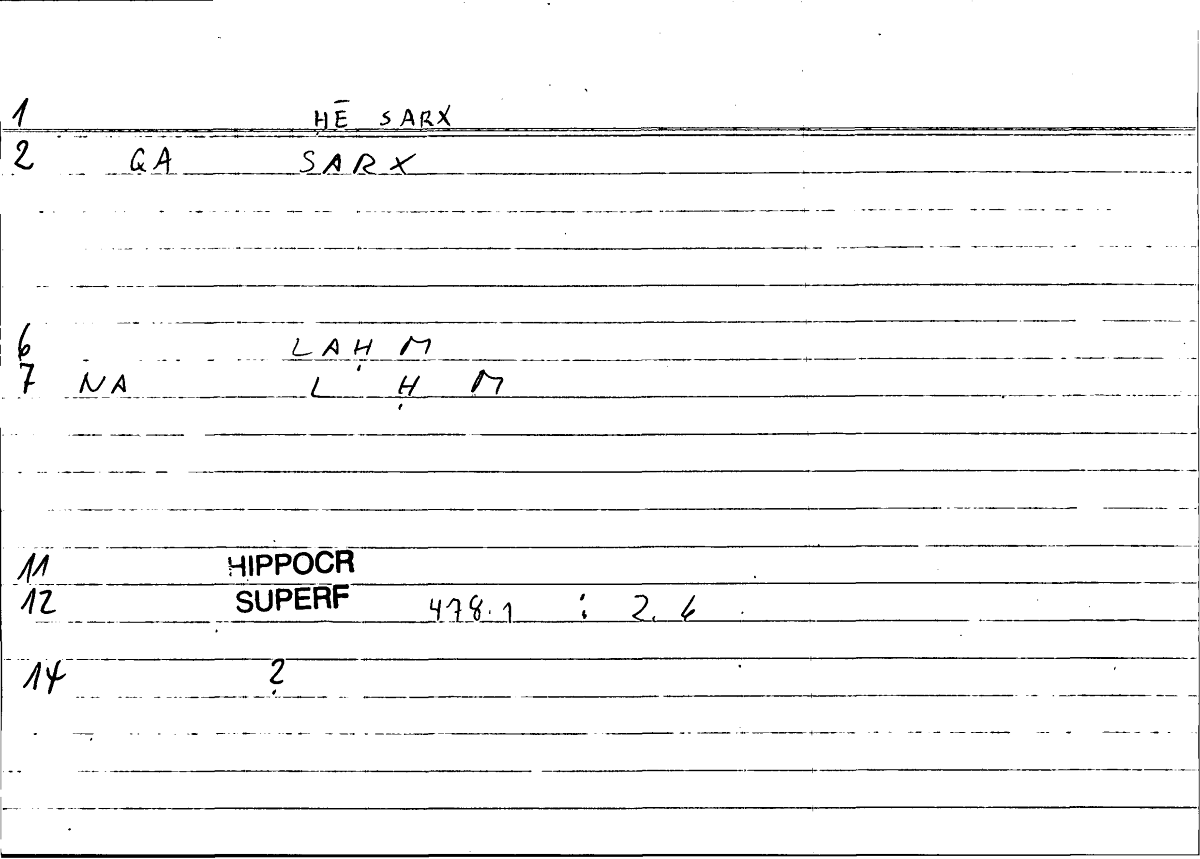 1 ḤĒ SARX
2 GA SARX
6 LAḤM
7 NA L Ḥ M
11 HIPPOCR
12 SUPERF 478.1 : 2.6
14 ?